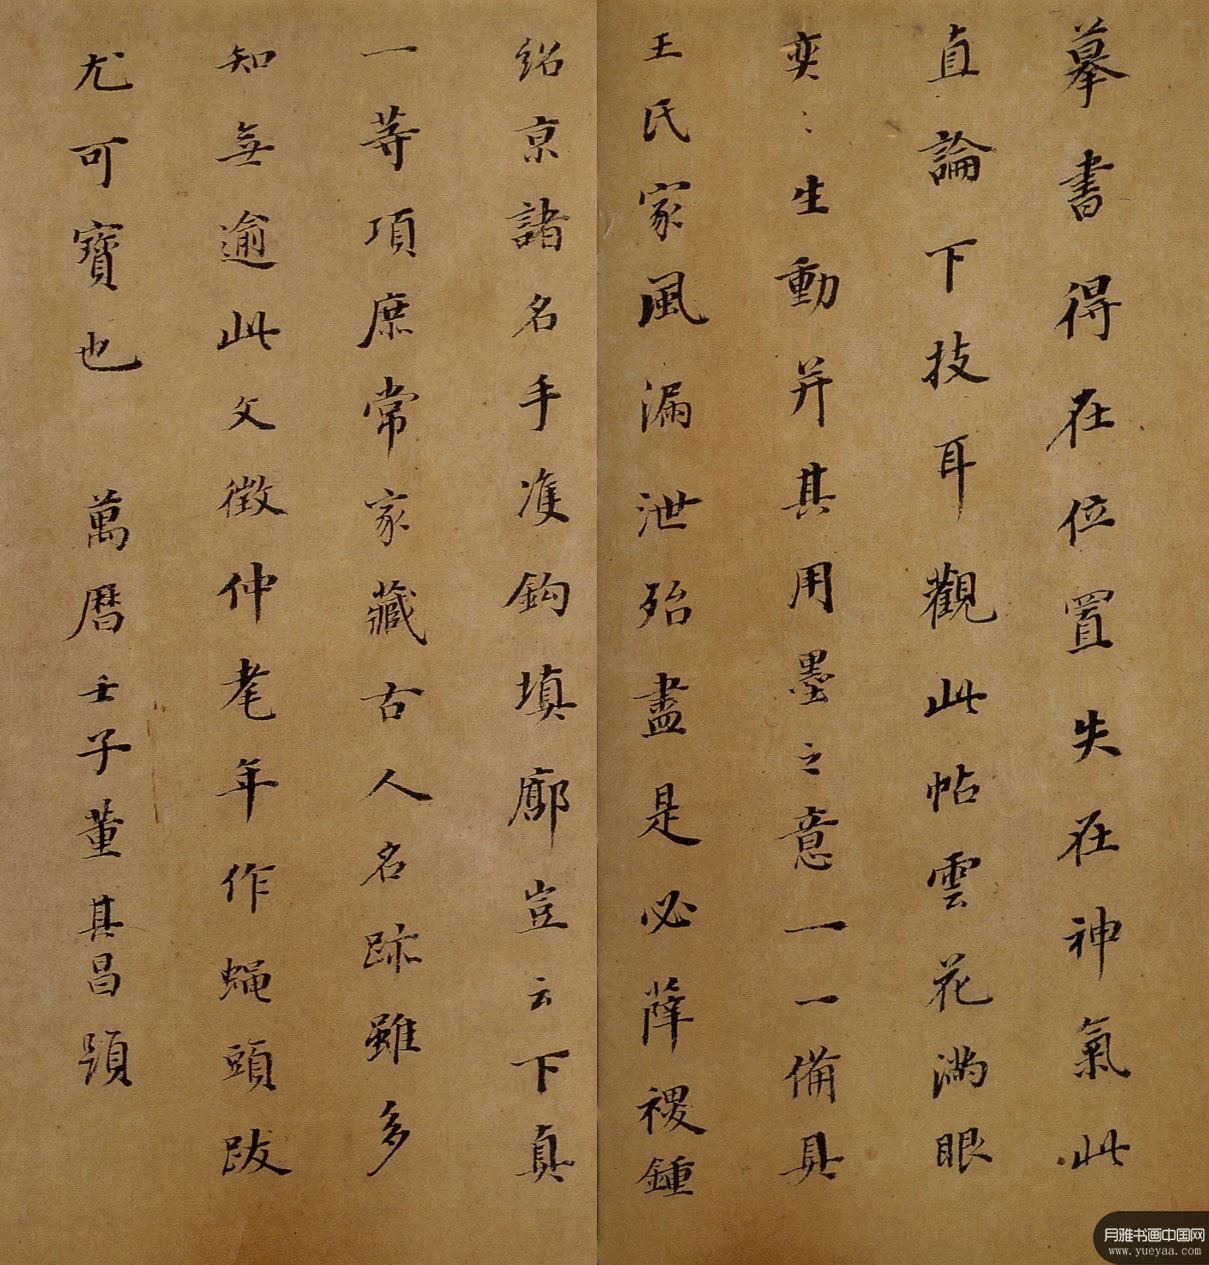 摹書得在位置失在神氣此
直論下技耳觀此帖雲花滿眼
奕〻生動并其用墨之意一一備具
王氏家風漏泄殆盡是必薛稷鍾
紹京諸名手雙鈎填廓豈云下真
一等項庶常家藏古人名跡雖多
知無逾此文徵仲耄年作蝇頭跋
尤可寶也 萬曆壬子董其昌題
月雅书画中国网
www.yueyaa.com